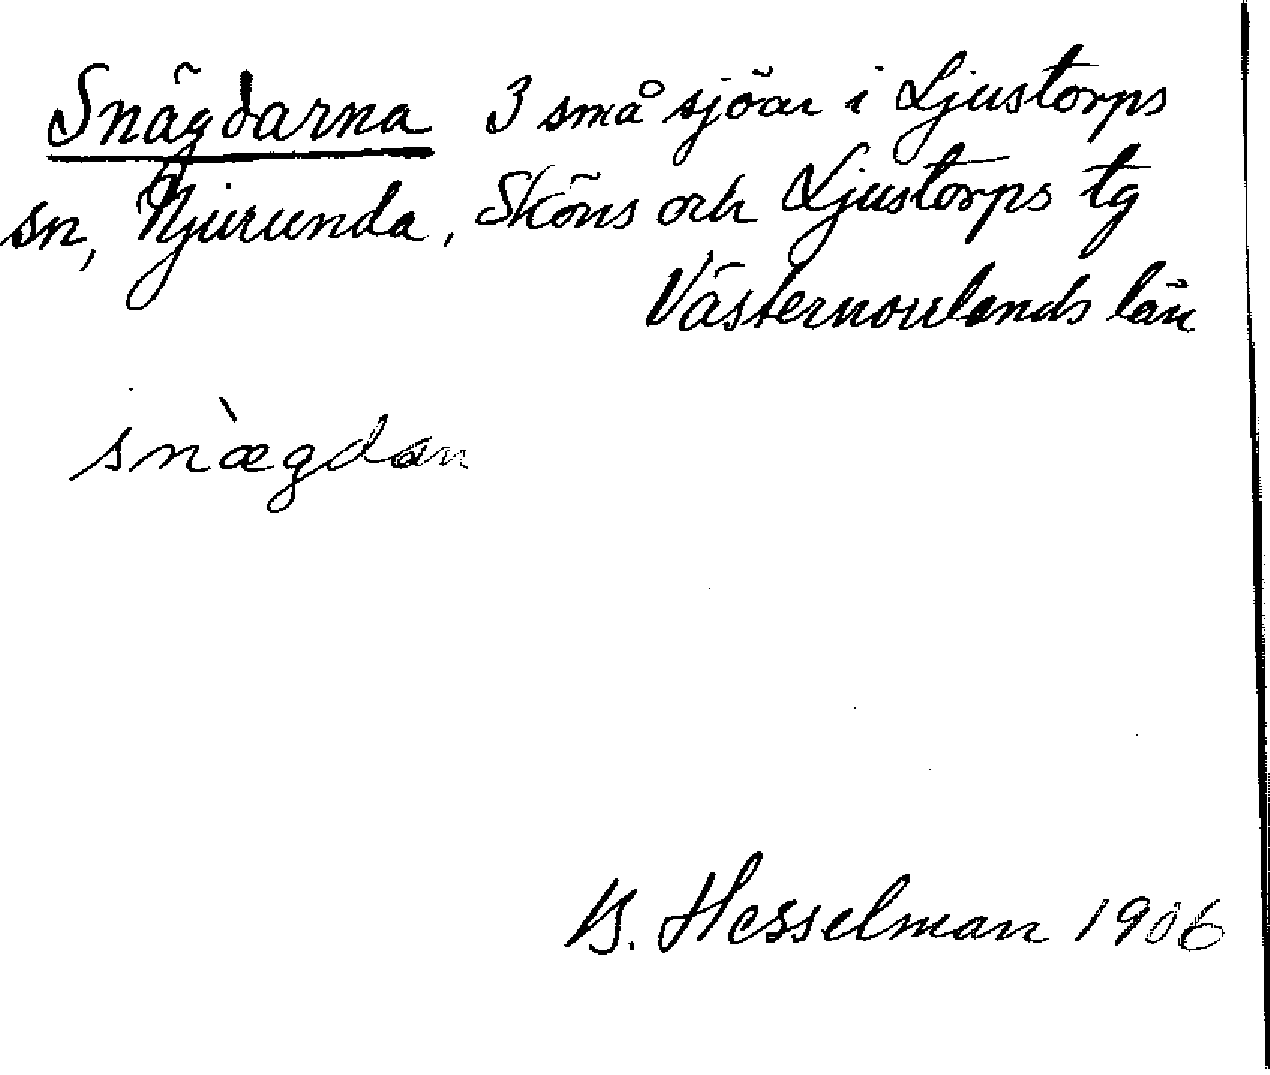 Snägdarna 3 små sjöar i Ljustorps
sn, Njurunda, Sköns och Ljustorps tg
Västernorrlands län
snàgdan
B. Hesselman 1906